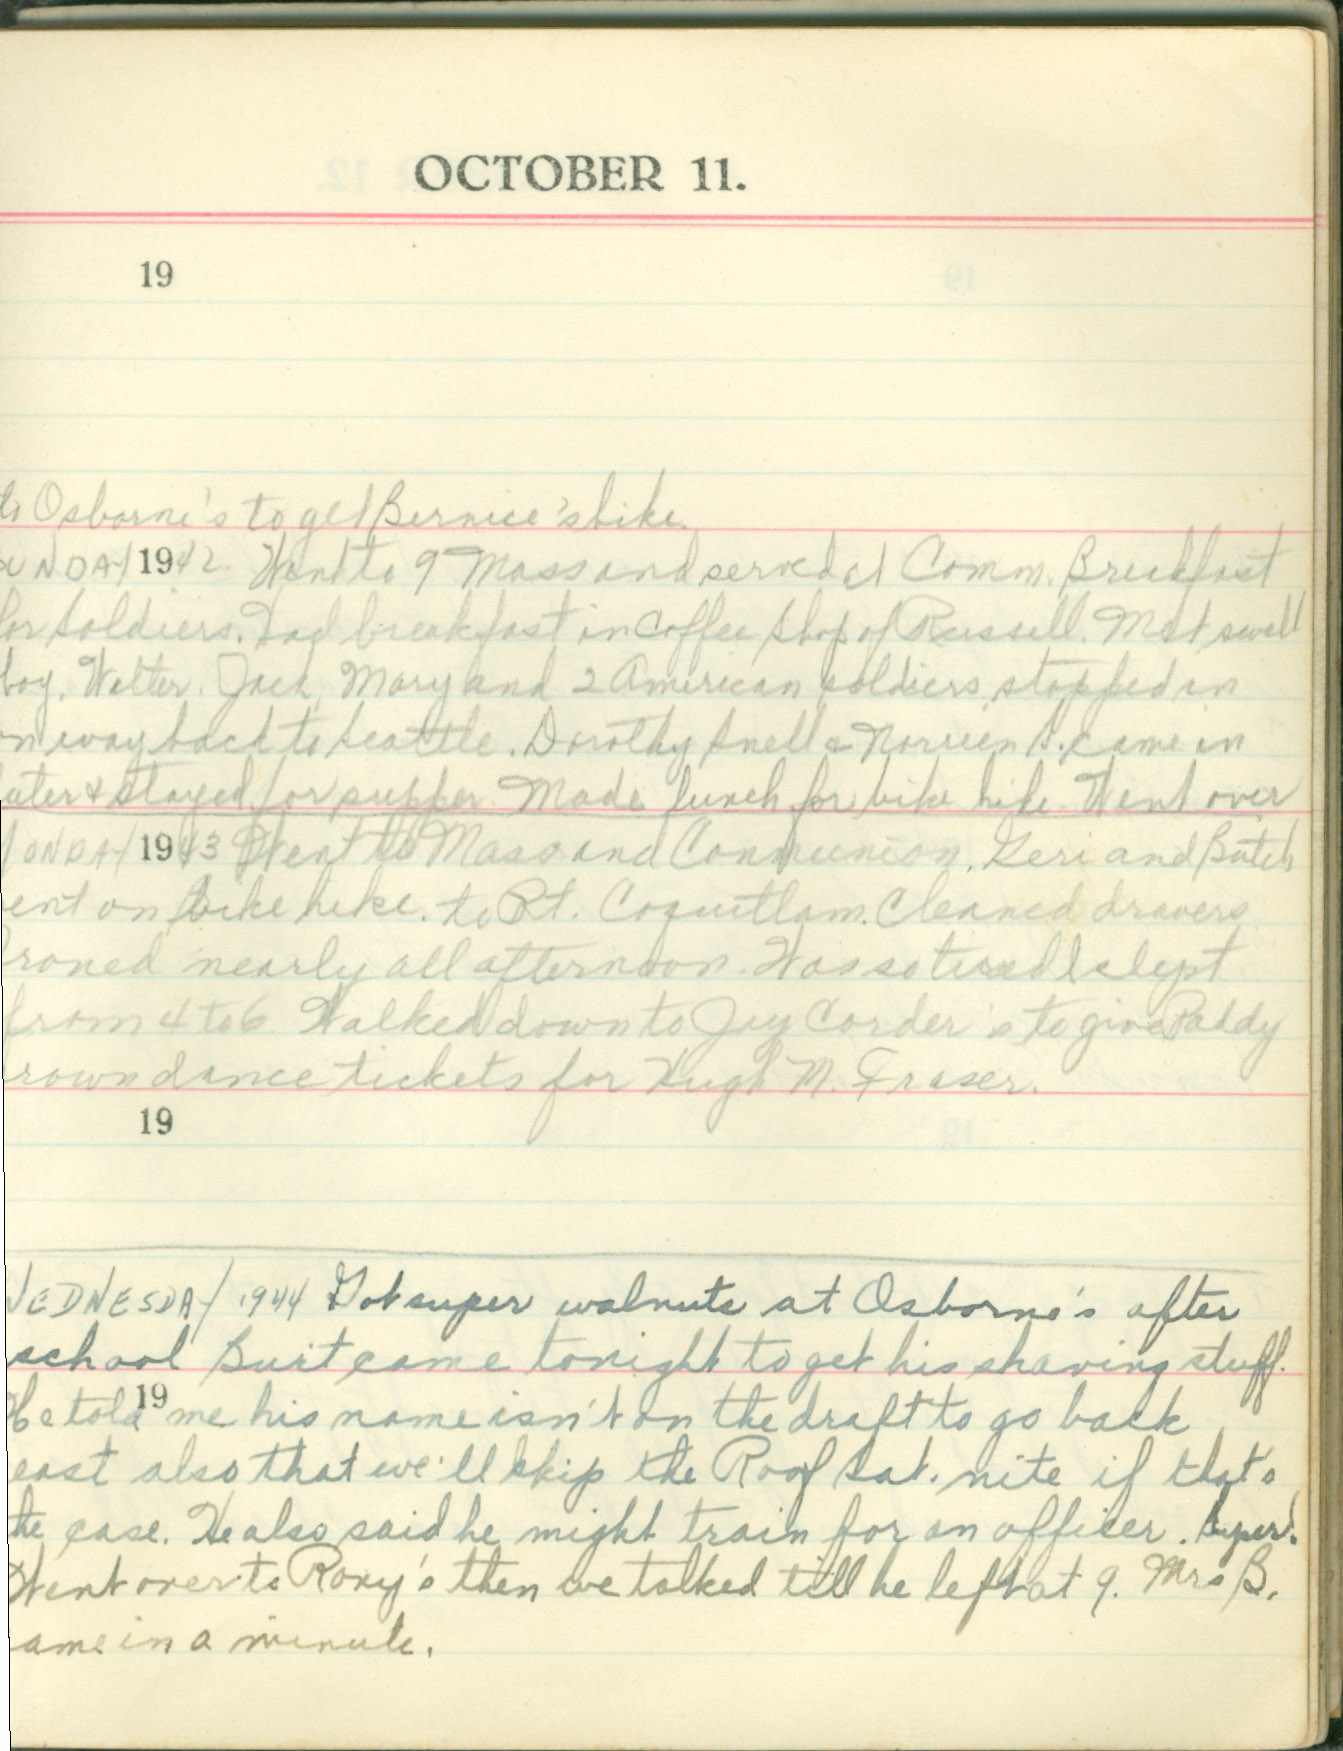 OCTOBER 11.
19
to Osborne's to get Bernice's bike.
SUNDAY 1942 Went to 9 Mass and served at Comm. Breakfast
for soldiers. Had breakfast in Coffee Shop of Russell. Met swell
boy, Walter. Jack, Mary and 2 American soldiers stopped in
on way back to Seattle. Dorothy Snell & Norieen S. came in
later & stayed for supper. Made lunch for bike hike. Went over
MONDAY 1943 Went to Mass and Communion. Geri and Butch
ent on bike hike. to Pt. Coquitlam. Cleaned drawers
roned nearly all afternoon. Was so tired I slept
from 4 to 6. Walked down to Jay Corder's to give Paddy
rown dance tickets for Hugh M. Fraser.
19
WEDNESDAY 1944 Got super walnuts at Osborne's after
school Burt came tonight to get his shaving stuff.
19
He told me his name isn't on the draft to go back
east also that we'll skip the Roof Sat. nite if that's
the case. He also said he might train for an officer. Super!
Went over to Roxy's then we talked till he left at 9. Mrs B.
ame in a minute.